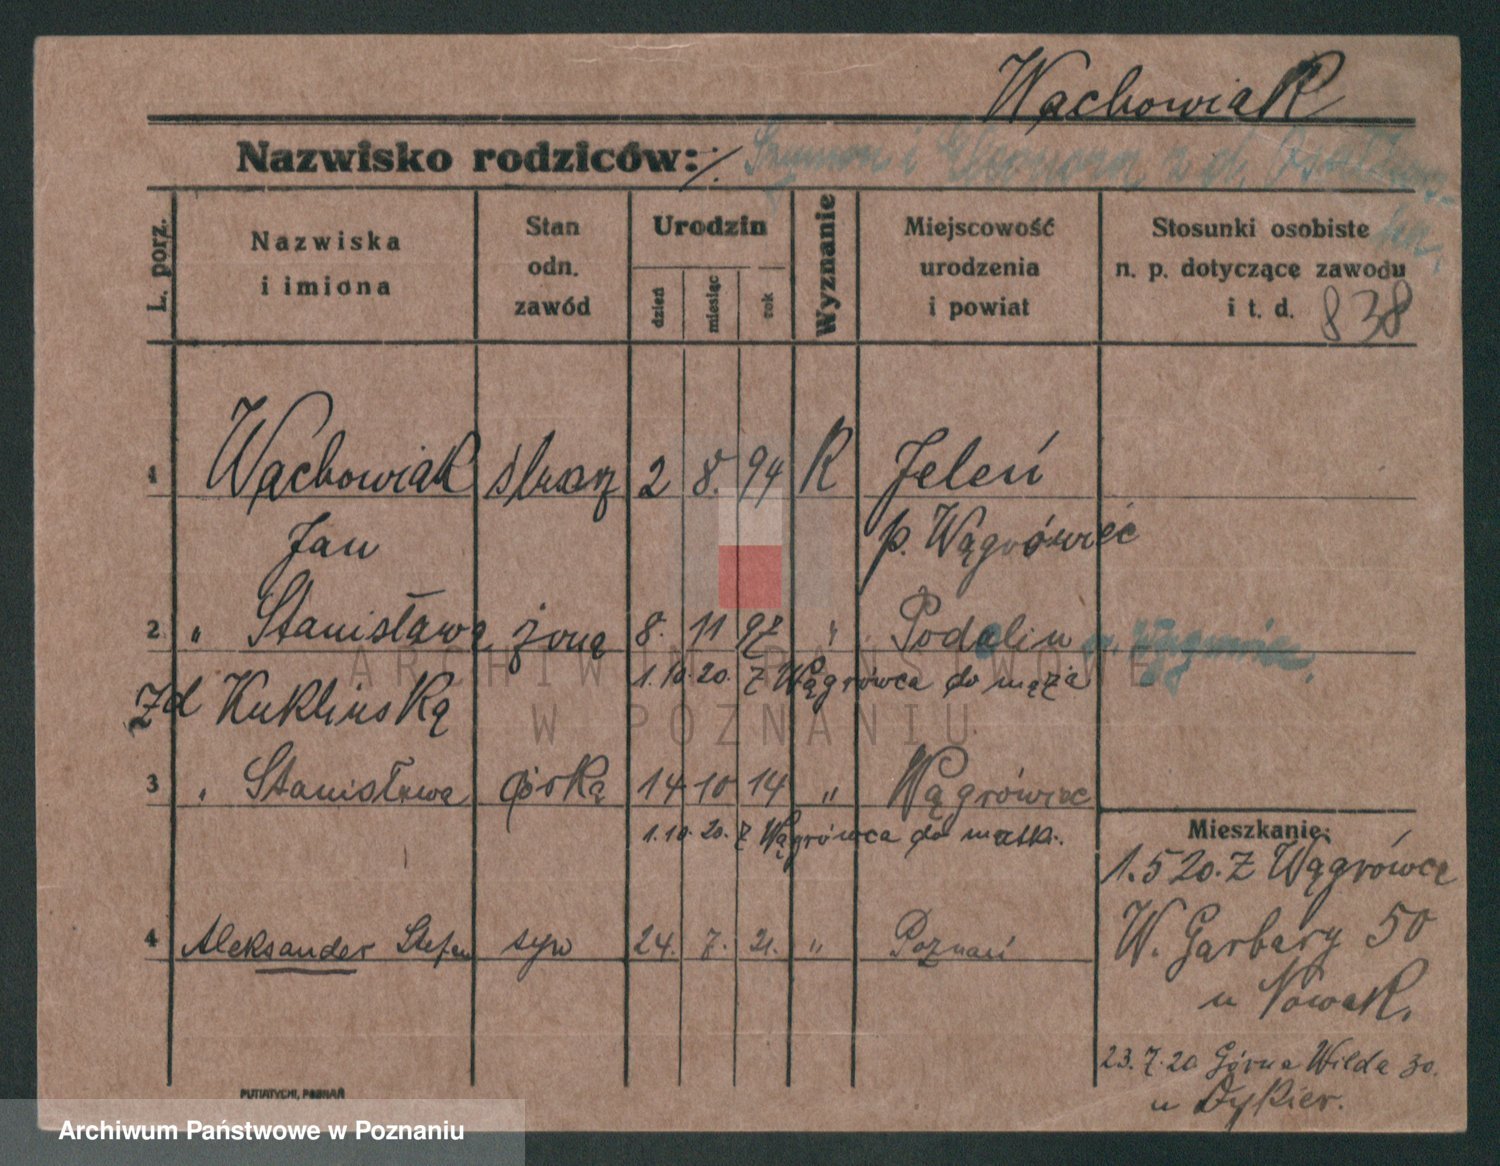 Wachowiak
Nazwisko rodziców: Szymon i Eleonora z d.
L. porz.
Nazwiska i imiona
Stan odn. zawód
Urodzin
dzień
miesiąc
rok
Wyznanie
Miejscowość urodzenia i powiat
Stosunki osobiste n. p. dotyczące zawodu i t. d.
838
1 Wachowiak ślusarz 2 8. 94 K Jeleń
Jan p. Wągrówiec
2 „ Stanisława żona 8. 11 97 „ Podolin p. Wągrówiec.
1.10.20. z Wągrówca do męża
zd Kuklińską
3 „ Stanisława córka 14 10 14 „ Wągrówiec
1.10.20. z Wągrówca do matki.
4 Aleksander Stefan syn 24. 7. 21. „ Poznań
Mieszkanie:
1.5 20. z Wągrówca
W. Garbary 50
u Nowak.
23.7.20 Górna Wilda 30.
u Dykier.
PUTIATYCKI, POZNAŃ
ARCHIWUM PAŃSTWOWE
W POZNANIU
Archiwum Państwowe w Poznaniu